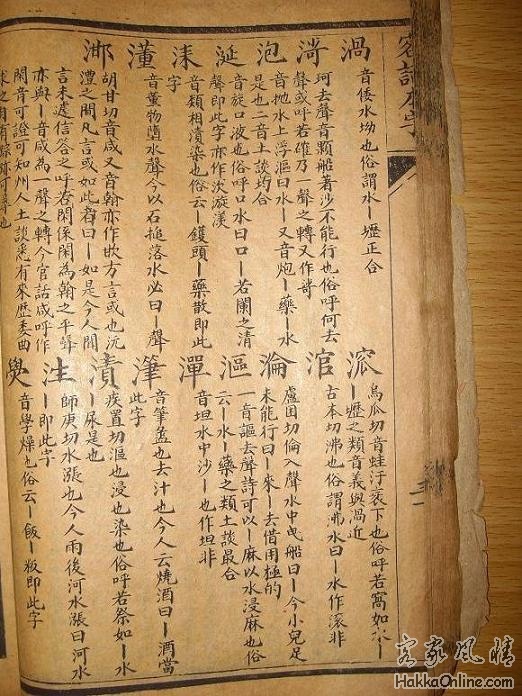 客話本字
渦
音倭水坳也俗謂水丨壢正合
渮
珂去聲音顆船著沙不能行也俗呼何去
聲或呼若雄乃一聲之轉又作哿
泡
音抛水上浮漚曰丨又音炮丨藥丨水
是也二音土談均合
涎
音旋口液也俗呼口水曰口丨若闌之清
聲即此字亦作次漩㵪
涑
音頪相漬染也俗云丨鑊頭丨藥散即此
字
湩
音董物墮水聲今以石搥落水必曰丨聲
胡甘切音咸又音翰亦作㰹方言或也沅
澧之間凡言或如此者曰丨如是今人問
言未遽信答之呼若閑係閑為翰之平聲
亦與丨音咸為一聲之轉今官話咸呼作
閑音可證可知州人土談悉有來歷委曲
求之自有踪跡可尋也
窊
烏瓜切音蛙汙衺下也俗呼若窩如水丨
丨壢之類音義與渦近
涫
古本切沸也俗謂沸水曰丨水作滾非
淪
盧困切倫入聲水中曳船曰丨今小兒足
未能行曰丨來丨去借用極的
漚
一音謳去聲詩可以丨麻以水浸麻也俗
云丨水丨藥之類土談最合
潬
音坦水中沙丨也作坦非
潷
音筆盪也去汁也今人云燒酒曰丨酒當
此字
漬
疾置切漚也浸也染也俗呼若祭如丨水
丨尿是也
泩
師庚切水漲也今人雨後河水漲曰河水
丨即此字
燢
音學燥也俗云丨飯丨粄即此字
客家風情
HakkaOnline.com